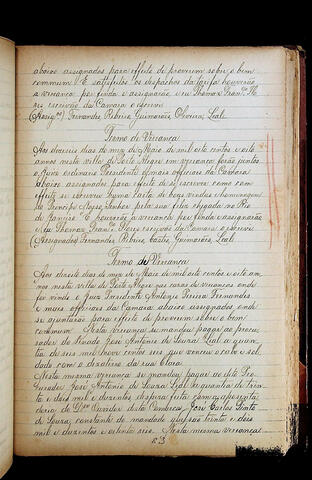 abaixo assignados para effeito de proverem sobre o bem
commum. E satisfeitos os despachos da tarifa houverão
a vereança por finda e assignarão eu Thomaz Fran.co Flo
res escrivão da Camara o escrevi
(Assig.os) Fernandes Ribeiro Guimarães Oliveira, Leal.
Termo de Vereança
Aos dezeseis dias do mez de Maio de mil oito centos e oito
annos nesta villa de Porto Alegre em vereança forão juntos
o Juiz ordinario Presidente e mais officiaes da Camara
abaixo assignados para effeito de se escrever como com
effeito se escreveu uma Carta de boas vindas e homenagem
ao Principe Nosso Senhor pela sua feliz chegada no Rio
de Janeiro. E houverão a vereança por finda e assignarão
eu Thomaz Fran.co Flores escrivão da Camara o escrevi
(Assignados) Fernandes, Ribeiro, Castro, Guimarães, Leal.
Termo de Vereança
Aos dezoito dias do mez de Maio de mil oito centos e oito an
nos nesta villa de Porto Alegre nas casas de vereanças onde
foi vindo o Juiz Presidente Antonio Pereira Fernandes
e mais officiaes da Camara abaixo assignados onde
se ajuntarão para effeito de proverem sobre o bem
commum. Nesta vereança se mandou pagar ao procu
rador do Senado José Antonio de Souza Leal a quan
tia de seis mil nove centos seis que venceu o cabo e sol
dado com o desalino da rua Clara
Nesta mesma vereança se mandou pagar ao dito Pro
curador José Antonio de Souza Leal a quantia de trin
ta e dois mil e duzentos despeza feita com a aposenta
doria do D.or Ouvidor desta Comarca José Carlos Pinto
de Souza, constante do mandado que são trinta e dois
mil e duzentos e oitenta reis. Nesta mesma vereança